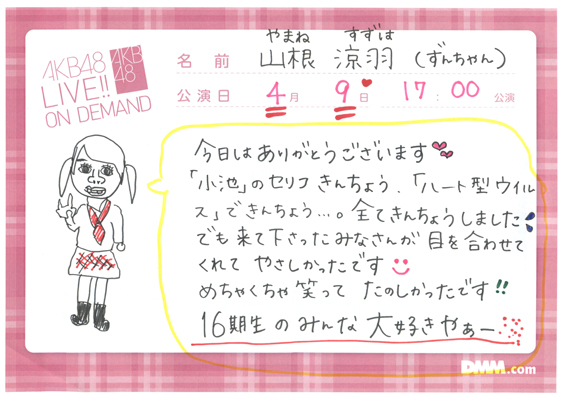 AKB48
LIVE!!
ON DEMAND
AKB
48
やまね すずは
名前 山根 涼羽 (ずんちゃん)
公演日 4月 9日 17:00 公演
今日はありがとうございます
「小池」のセリフきんちょう、「ハート型ウイル
ス」できんちょう…。全てきんちょうしました
でも来て下さったみなさんが目を合わせて
くれて やさしかったです
めちゃくちゃ笑って たのしかったです!!
16期生のみんな大好きやぁー
DMM.com